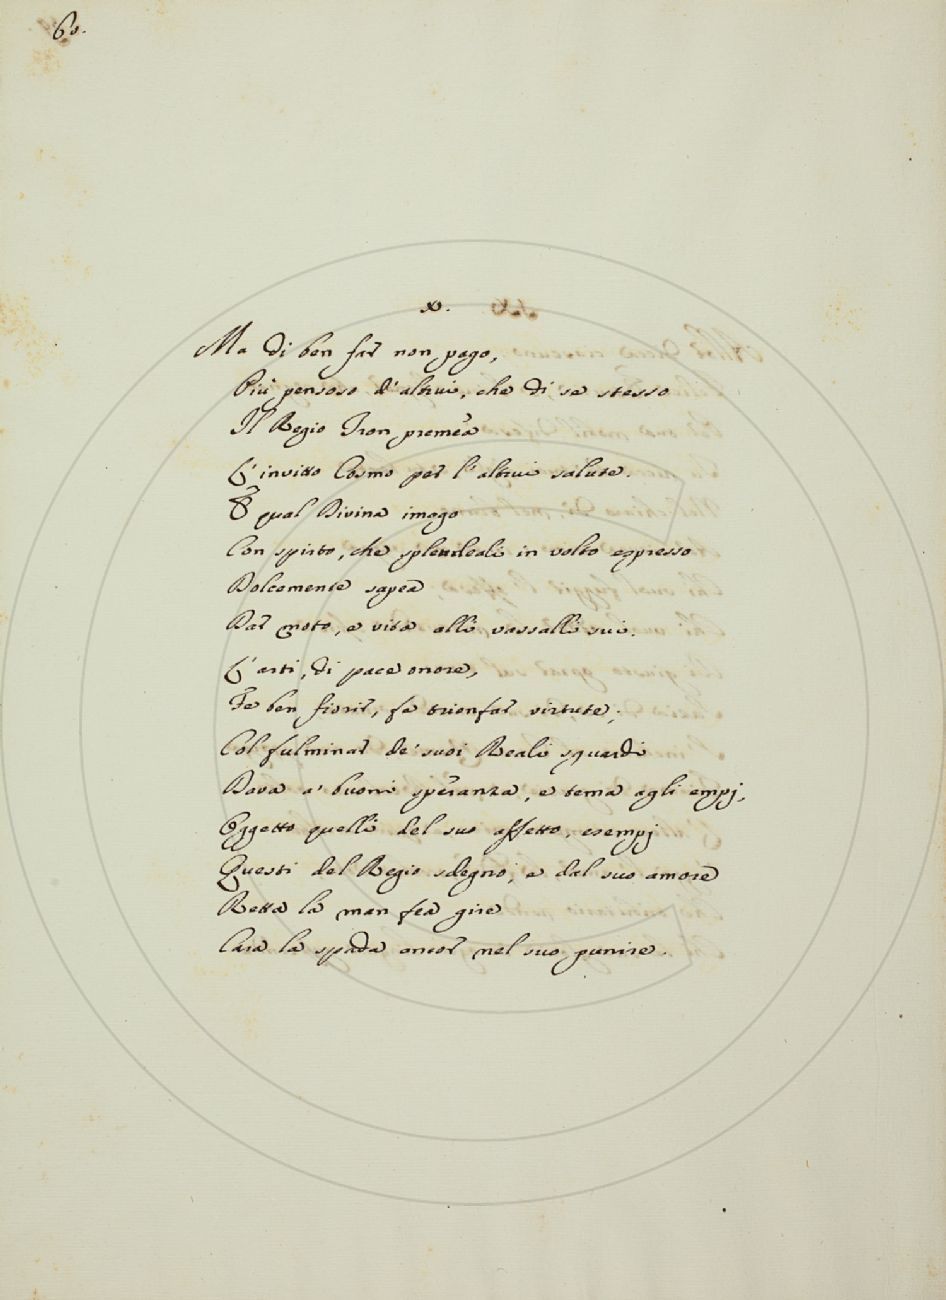 60.
X.
Ma di ben far non pago,
Più pensoso d'altrui, che di se stesso
Il Regio Tron premea
L'invitto Cosmo per l'altrui salute.
E qual Divina imago
Con spirto, che splendeali in volto espresso
Dolcemente sapea
Dar moto, e vita alli vassalli sui.
L'arti, di pace onore,
Fe ben fiorir, fe trionfar virtute;
Col fulminar de' suoi Reali sguardi
Dava a' buoni speranza, e tema agli empj,
Oggetto quelli del suo affetto, esempj
Questi del Regio sdegno, e dal suo amore
Retta la man fea gire
Cara la spada ancor nel suo punire.